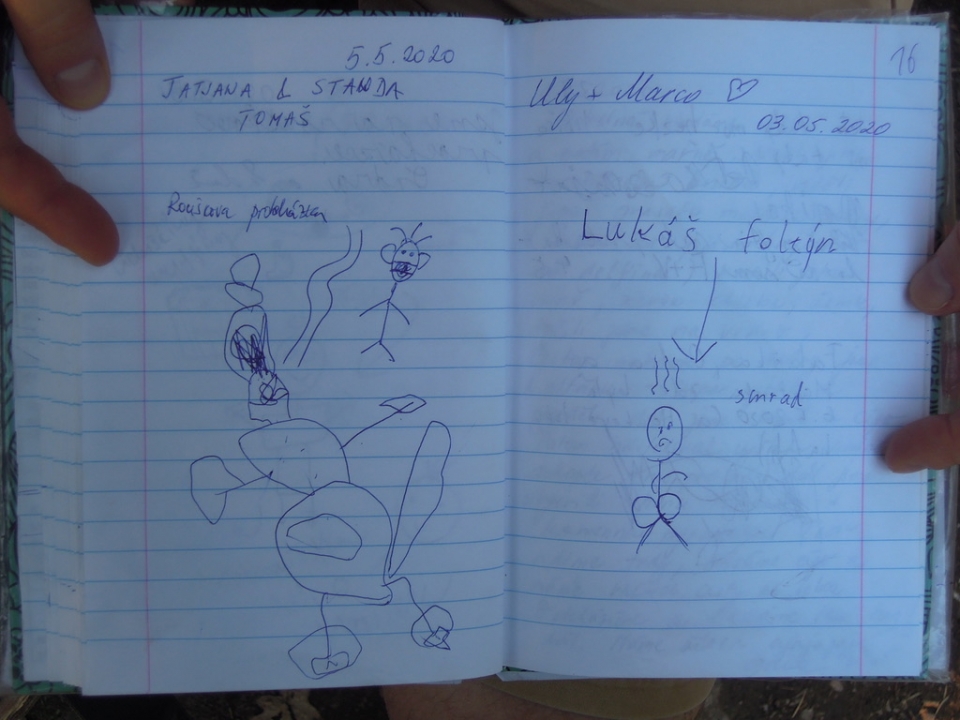 5.5.2020
TATJANA & STANDA
TOMAŠ
Roušcova
16
Uly + Marco ♡
03.05.2020
Lukáš foltýn
smrad